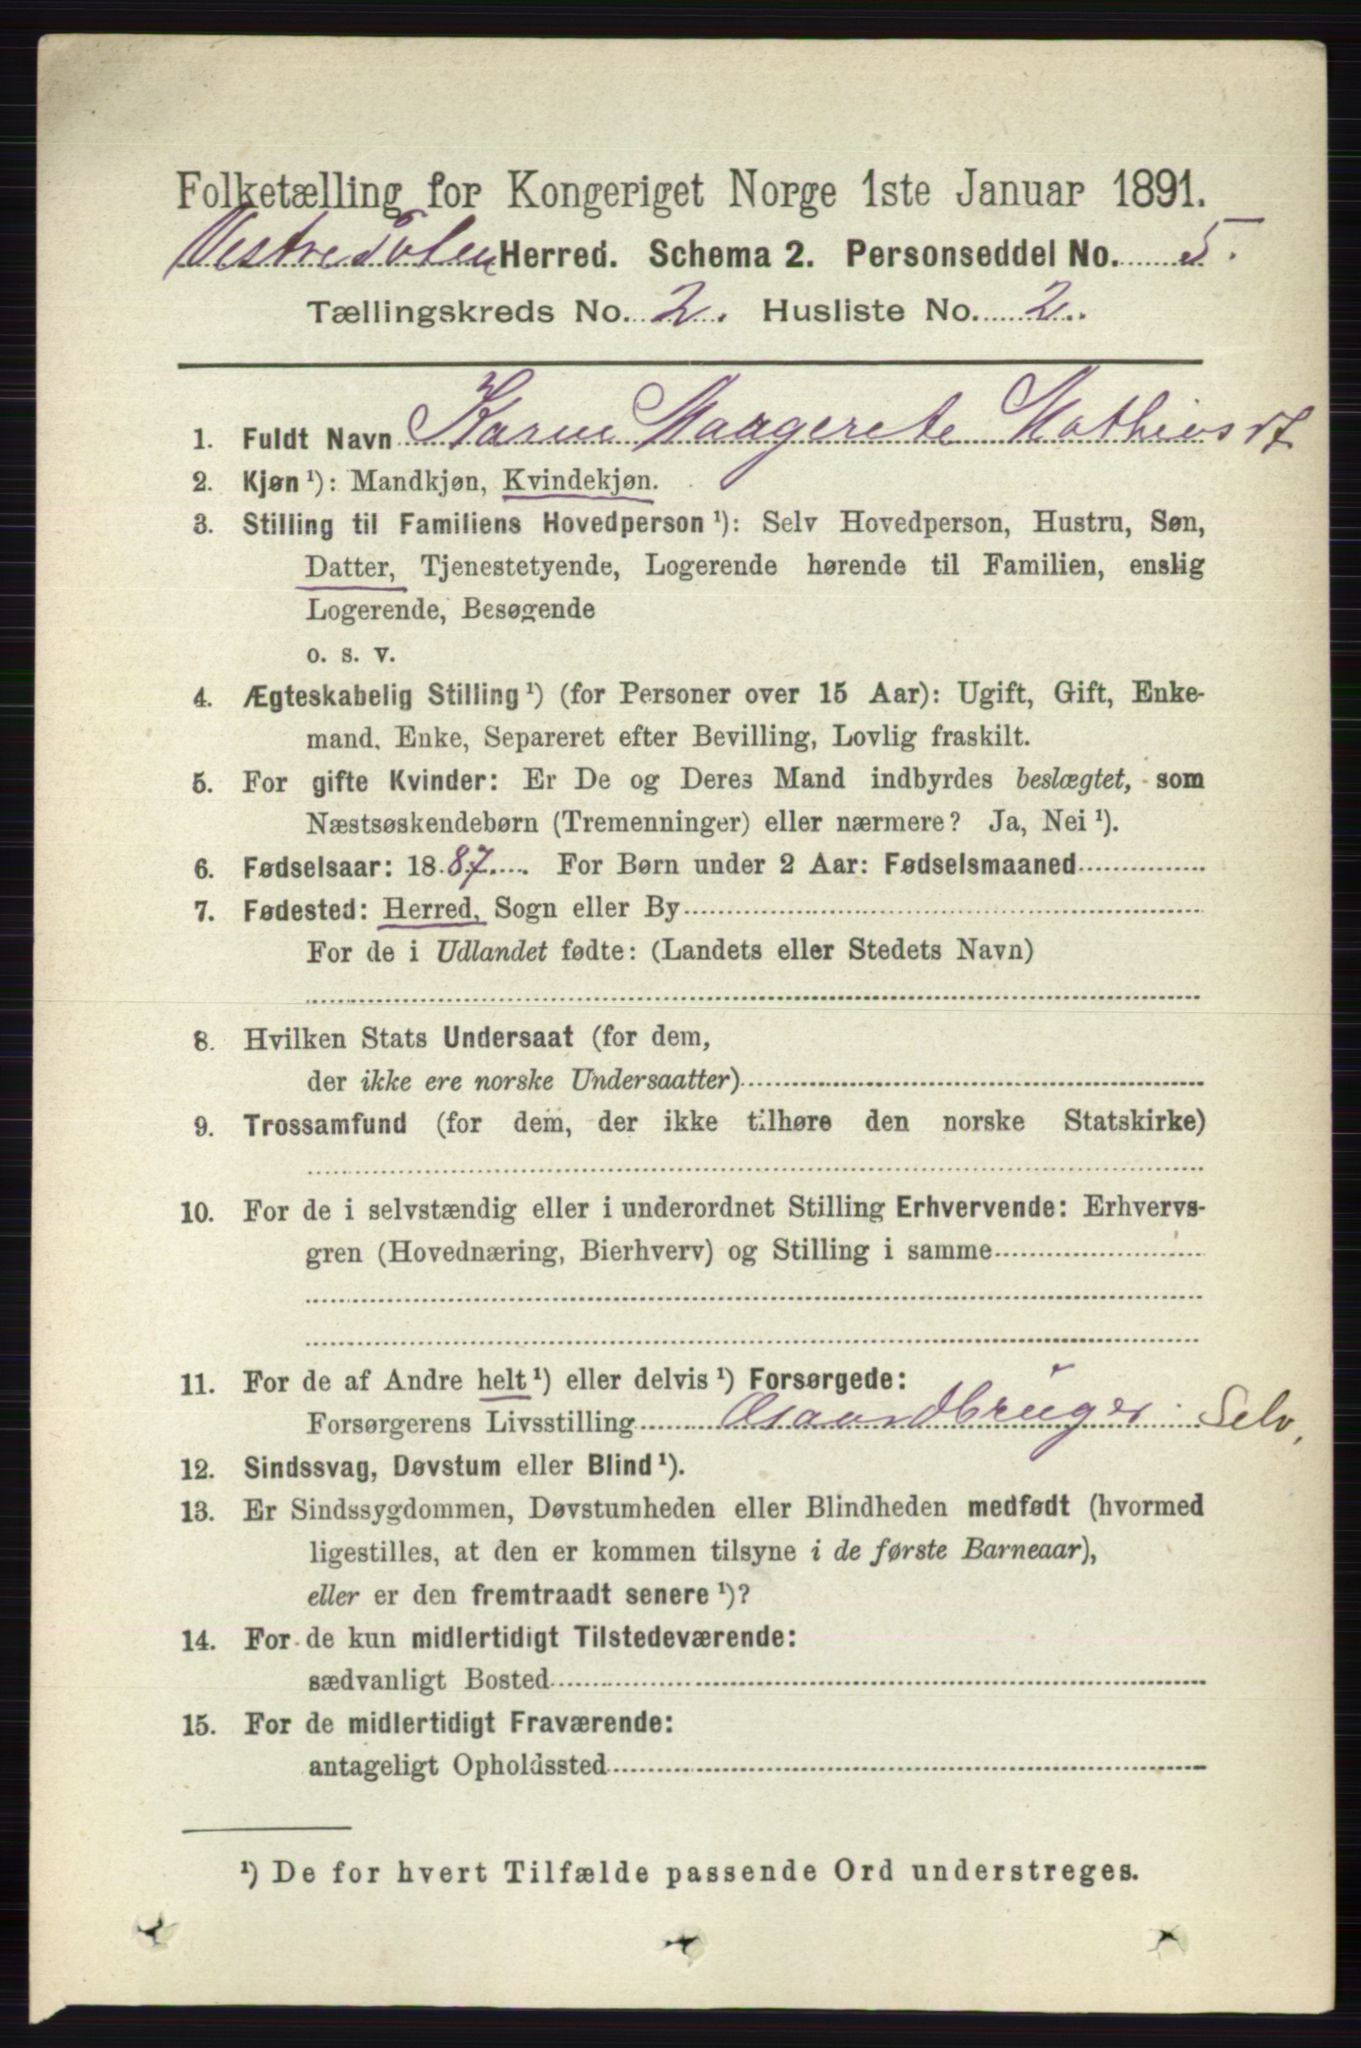 Folketælling for Kongeriget Norge 1ste Januar 1891.
Vestre Toten Herred. Schema 2. Personseddel No. 5.
Tællingskreds No. 2. Husliste No. 2.
1. Fuldt Navn Karen Maagerete Mathiesdt
2. Kjøn ¹): Mandkjøn, Kvindekjøn.
3. Stilling til Familiens Hovedperson ¹): Selv Hovedperson, Hustru, Søn,
Datter, Tjenestetyende, Logerende hørende til Familien, enslig
Logerende, Besøgende
o. s. v.
4. Ægteskabelig Stilling ¹) (for Personer over 15 Aar): Ugift, Gift, Enke-
mand, Enke, Separeret efter Bevilling, Lovlig fraskilt.
5. For gifte Kvinder: Er De og Deres Mand indbyrdes beslægtet, som
Næstsøskendebørn (Tremenninger) eller nærmere? Ja, Nei ¹).
6. Fødselsaar: 1887. For Børn under 2 Aar: Fødselsmaaned
7. Fødested: Herred, Sogn eller By
For de i Udlandet fødte: (Landets eller Stedets Navn)
8. Hvilken Stats Undersaat (for dem,
der ikke ere norske Undersaatter)
9. Trossamfund (for dem, der ikke tilhøre den norske Statskirke)
10. For de i selvstændig eller i underordnet Stilling Erhvervende: Erhvervs-
gren (Hovednæring, Bierhverv) og Stilling i samme
11. For de af Andre helt ¹) eller delvis ¹) Forsørgede:
Forsørgerens Livsstilling Gaardbruger Selv.
12. Sindssvag, Døvstum eller Blind ¹).
13. Er Sindssygdommen, Døvstumheden eller Blindheden medfødt (hvormed
ligestilles, at den er kommen tilsyne i de første Barneaar),
eller er den fremtraadt senere ¹)?
14. For de kun midlertidigt Tilstedeværende:
sædvanligt Bosted
15. For de midlertidigt Fraværende:
antageligt Opholdssted
¹) De for hvert Tilfælde passende Ord understreges.